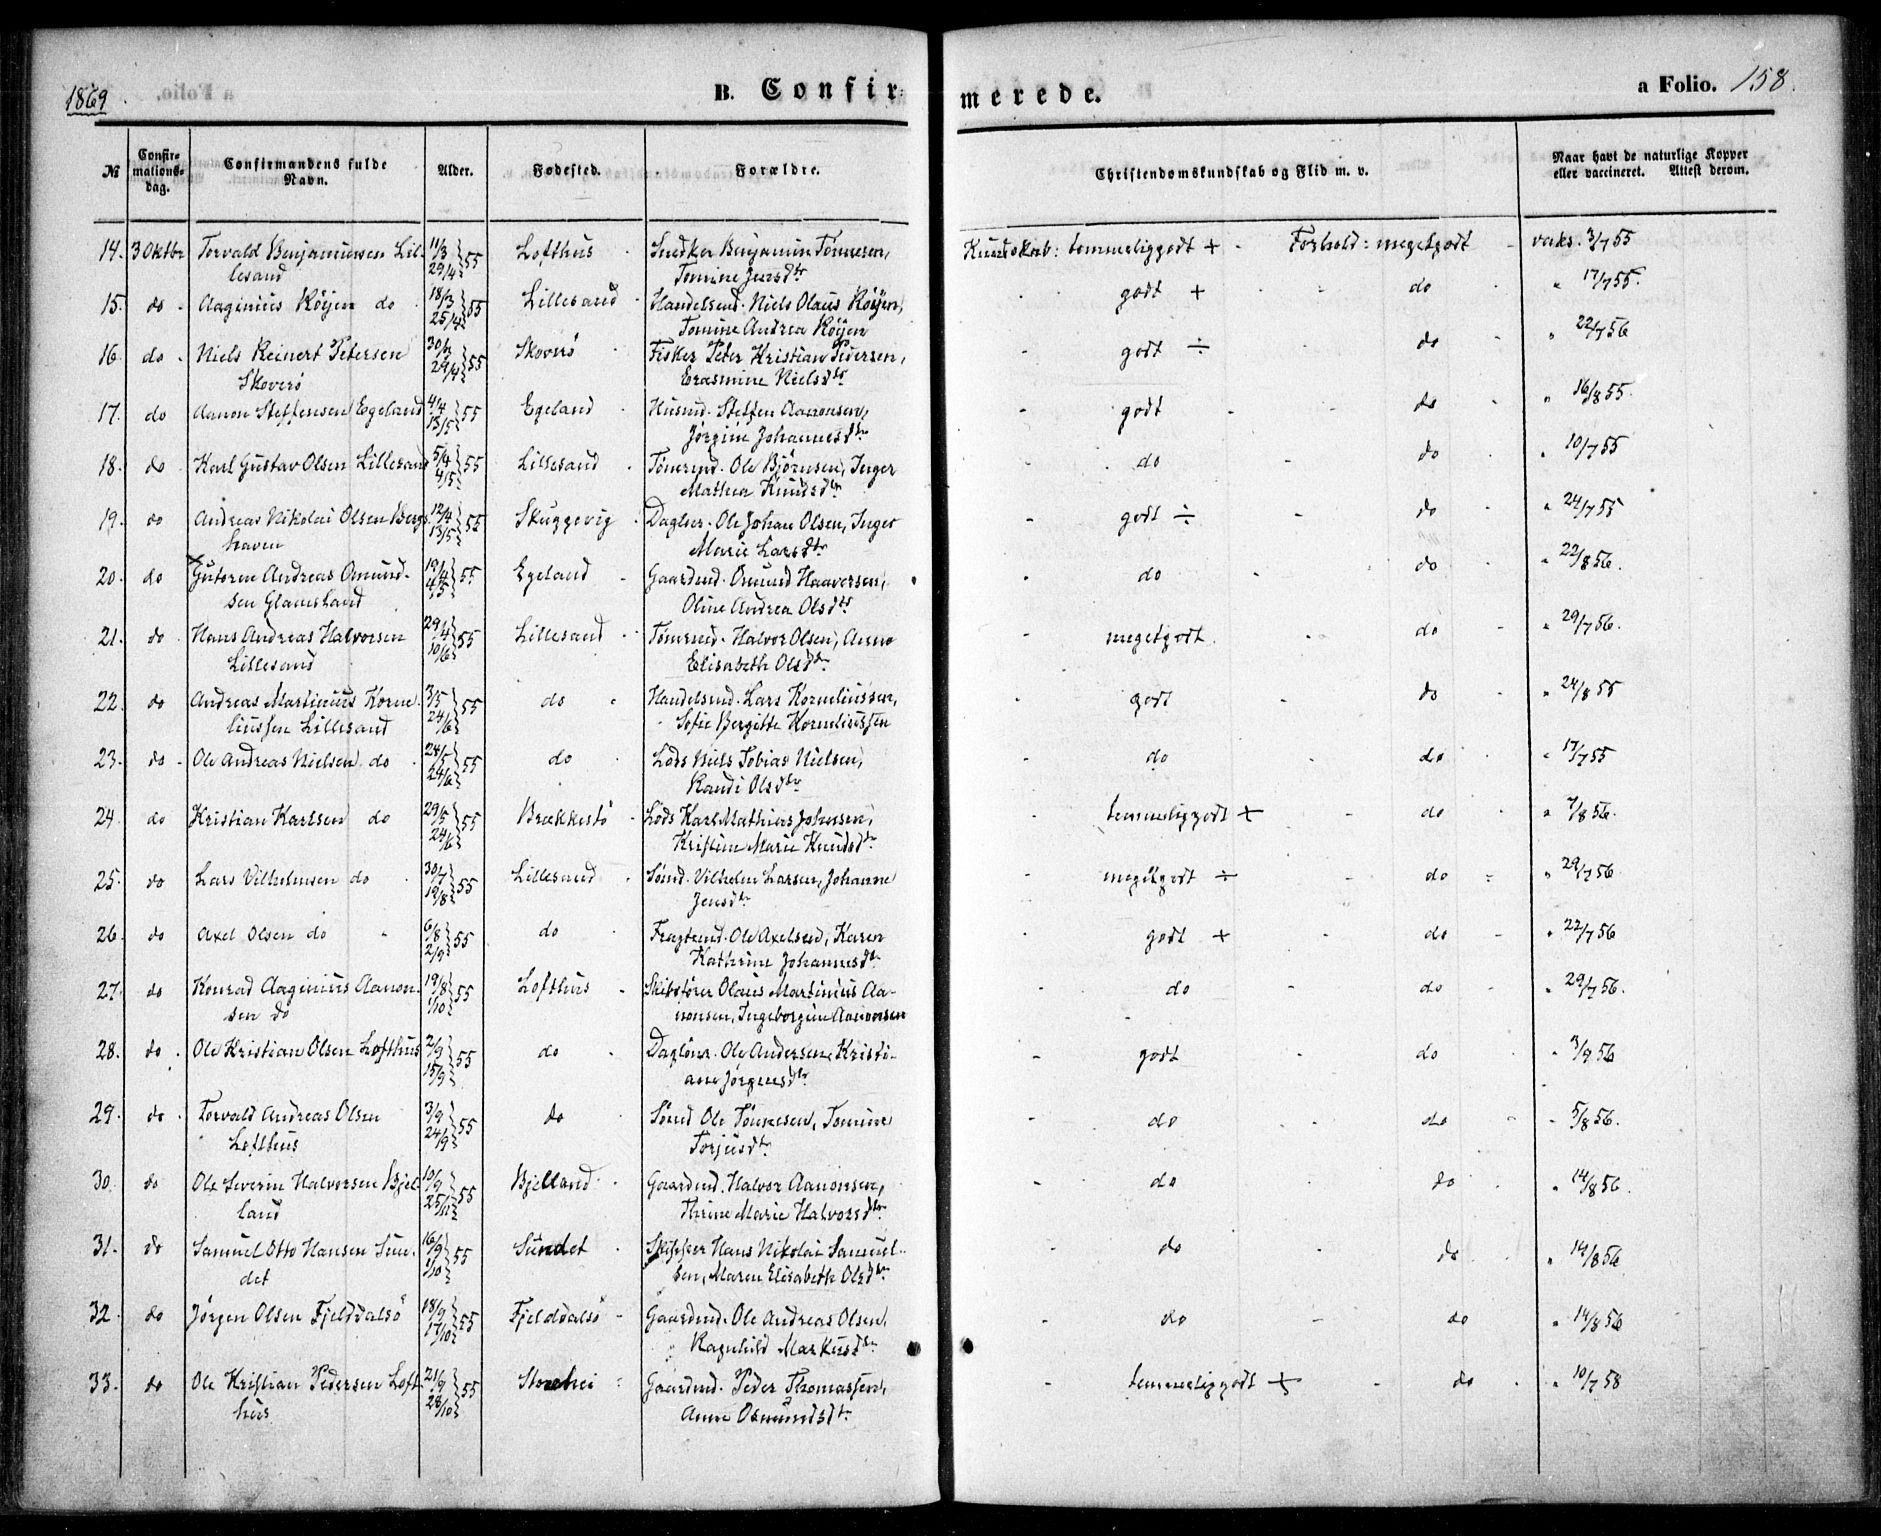 1869
B. Confir-
merede.
a Folio. 158.
№ Confirmationsdag. Confirmandens fulde Navn. Alder. Fødested. Forældre. Christendomskundskab og Flid m. v. Naar havt de naturlige Kopper eller vaccineret. Attest derom.
14. 3 Oktbr Torvald Benjaminsen Lil- 11/3 29/4 55 Lofthus Snedker Benjamin Tønnesen, Kundskab: temmeliggodt + Forhold: megetgodt vaks. 3/7 55
lesand Tomine Jensdtr
15. do Aaginius Röijen do 18/3 25/4 55 Lillesand Handelsmd. Niels Olaus Röijen, godt + do " 17/7 55.
Tomine Andrea Röijen
16. do Niels Reinert Petersen 30/3 29/4 55 Skoverö Fisker Peter Kristian Pedersen, godt ÷ do " 22/7 56
Skoverö Erasmine Nielsdtr
17. do Aanon Steffensen Egeland 4/4 13/5 55 Egeland Husmd. Steffen Aanonsen, godt do " 16/8 55.
Jørgine Johannesdtr
18. do Karl Gustav Olsen Lillesand 5/4 4/5 55 Lillesand Tømrmd. Ole Bjørnsen, Inger do do " 10/7 55
Mathea Knudsdtr
19. do Andreas Nikolai Olsen Berge 12/4 13/5 55 Skuggevig Daglnr. Ole Johan Olsen, Inger godt ÷ do " 24/7 55
haven Marie Larsdtr
20. do Gutorm Andreas Omund- 19/4 4/5 55 Egeland Gaardmd. Omund Haaversen, do do " 22/8 56.
sen Glamsland Oline Andrea Olsdtr
21. do Hans Andreas Halvorsen 29/4 10/6 55 Lillesand Tømrmd. Halvor Olsen, Anne megetgodt. do " 29/7 56.
Lillesand Elisabeth Olsdtr
22. do Andreas Martinius Korne- 3/5 24/6 55 do Handelsmd. Lars Korneliussen, godt do " 24/8 55
liussen Lillesand Sofie Bergitte Korneliussen
23. do Ole Andreas Nielsen do 28/5 24/6 55 do Lods Niels Tobias Nielsen, do do " 17/7 55
Randi Olsdtr
24. do Kristian Karlsen do 29/5 24/6 55 Brækkestö Lods Karl Mathias Johnsen, temmeliggodt + do " 7/8 56.
Kristine Marie Knudsdtr
25. do Lars Vilhelmsen do 30/7 19/8 55 Lillesand Sømd. Vilhelm Larsen, Johanne megetgodt ÷ do " 29/7 56.
Jensdtr
26. do Axel Olsen do 6/8 2/9 55 do Fragtmd. Ole Axelsen, Karen godt + do " 22/7 56
Kathrine Johannesdtr
27. do Konrad Aaginius Aanon- 19/8 1/10 55 Lofthus Skibsfører Olaus Martinius Aa- do do " 29/7 56.
sen do nonsen, Ingeborgine Aanonsen
28. do Ole Kristian Olsen Lofthus 2/9 15/9 55 do Daglönr. Ole Andersen, Kristi- godt do " 3/9 56
ane Jørgensdtr
29. do Torvald Andreas Olsen 3/9 24/9 55 do Sømd Ole Tönnesen, Tomine do do " 5/8 56.
Lofthus Torjusdtr
30. do Ole Severin Halvorsen Bjel- 10/9 25/11 55 Bjelland Gaardmd. Halvor Aanonsen, do do " 14/8 56.
land Thrine Marie Halvorsdtr
31. do Samuel Otto Hansen Sun- 16/9 1/10 55 Sundet Skipper Hans Nikolai Samuel- do do " 14/8 56.
det sen, Maren Elisabeth Olsdtr
32. do Jörgen Olsen Fjeldalsö 18/9 17/10 55 Fjeldalsö Gaardmd. Ole Andreas Olsen, do do " 14/8 56
Ragnhild Markusdtr
33. do Ole Kristian Pedersen Loft- 21/9 28/10 55 Storehei Gaardmd. Peder Thomassen, temmeliggodt + do " 10/7 58
hus Anne Osmundsdtr